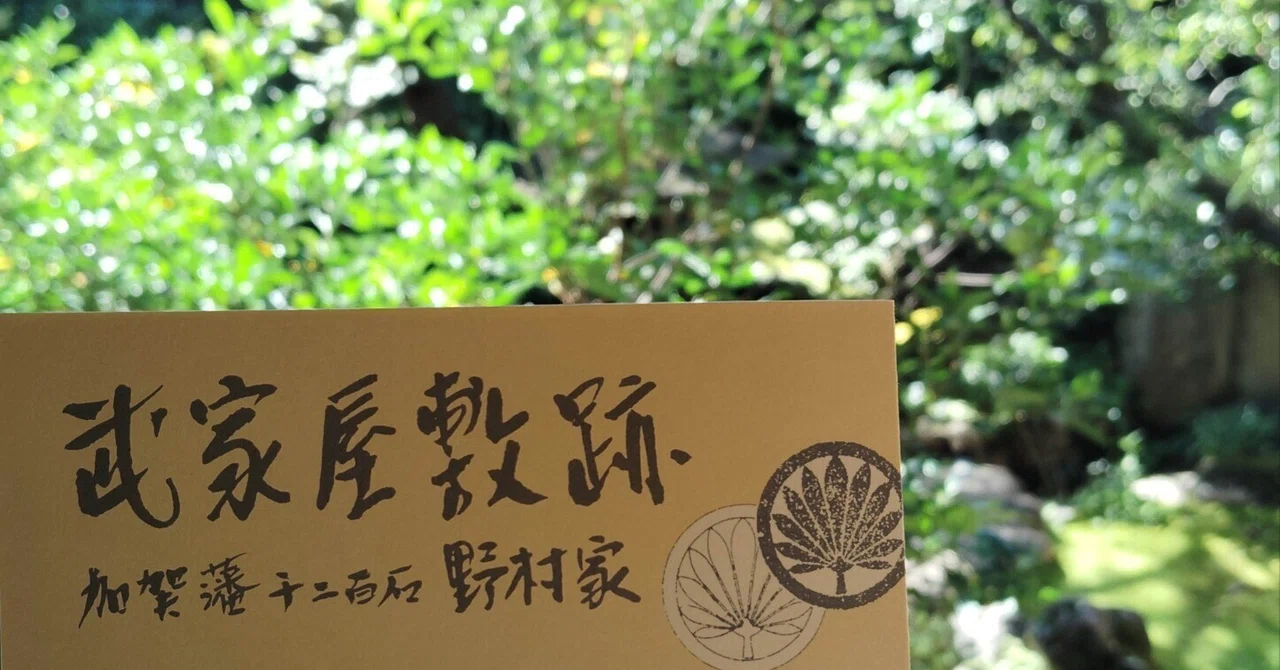 武家屋敷跡
加賀藩千二百石 野村家